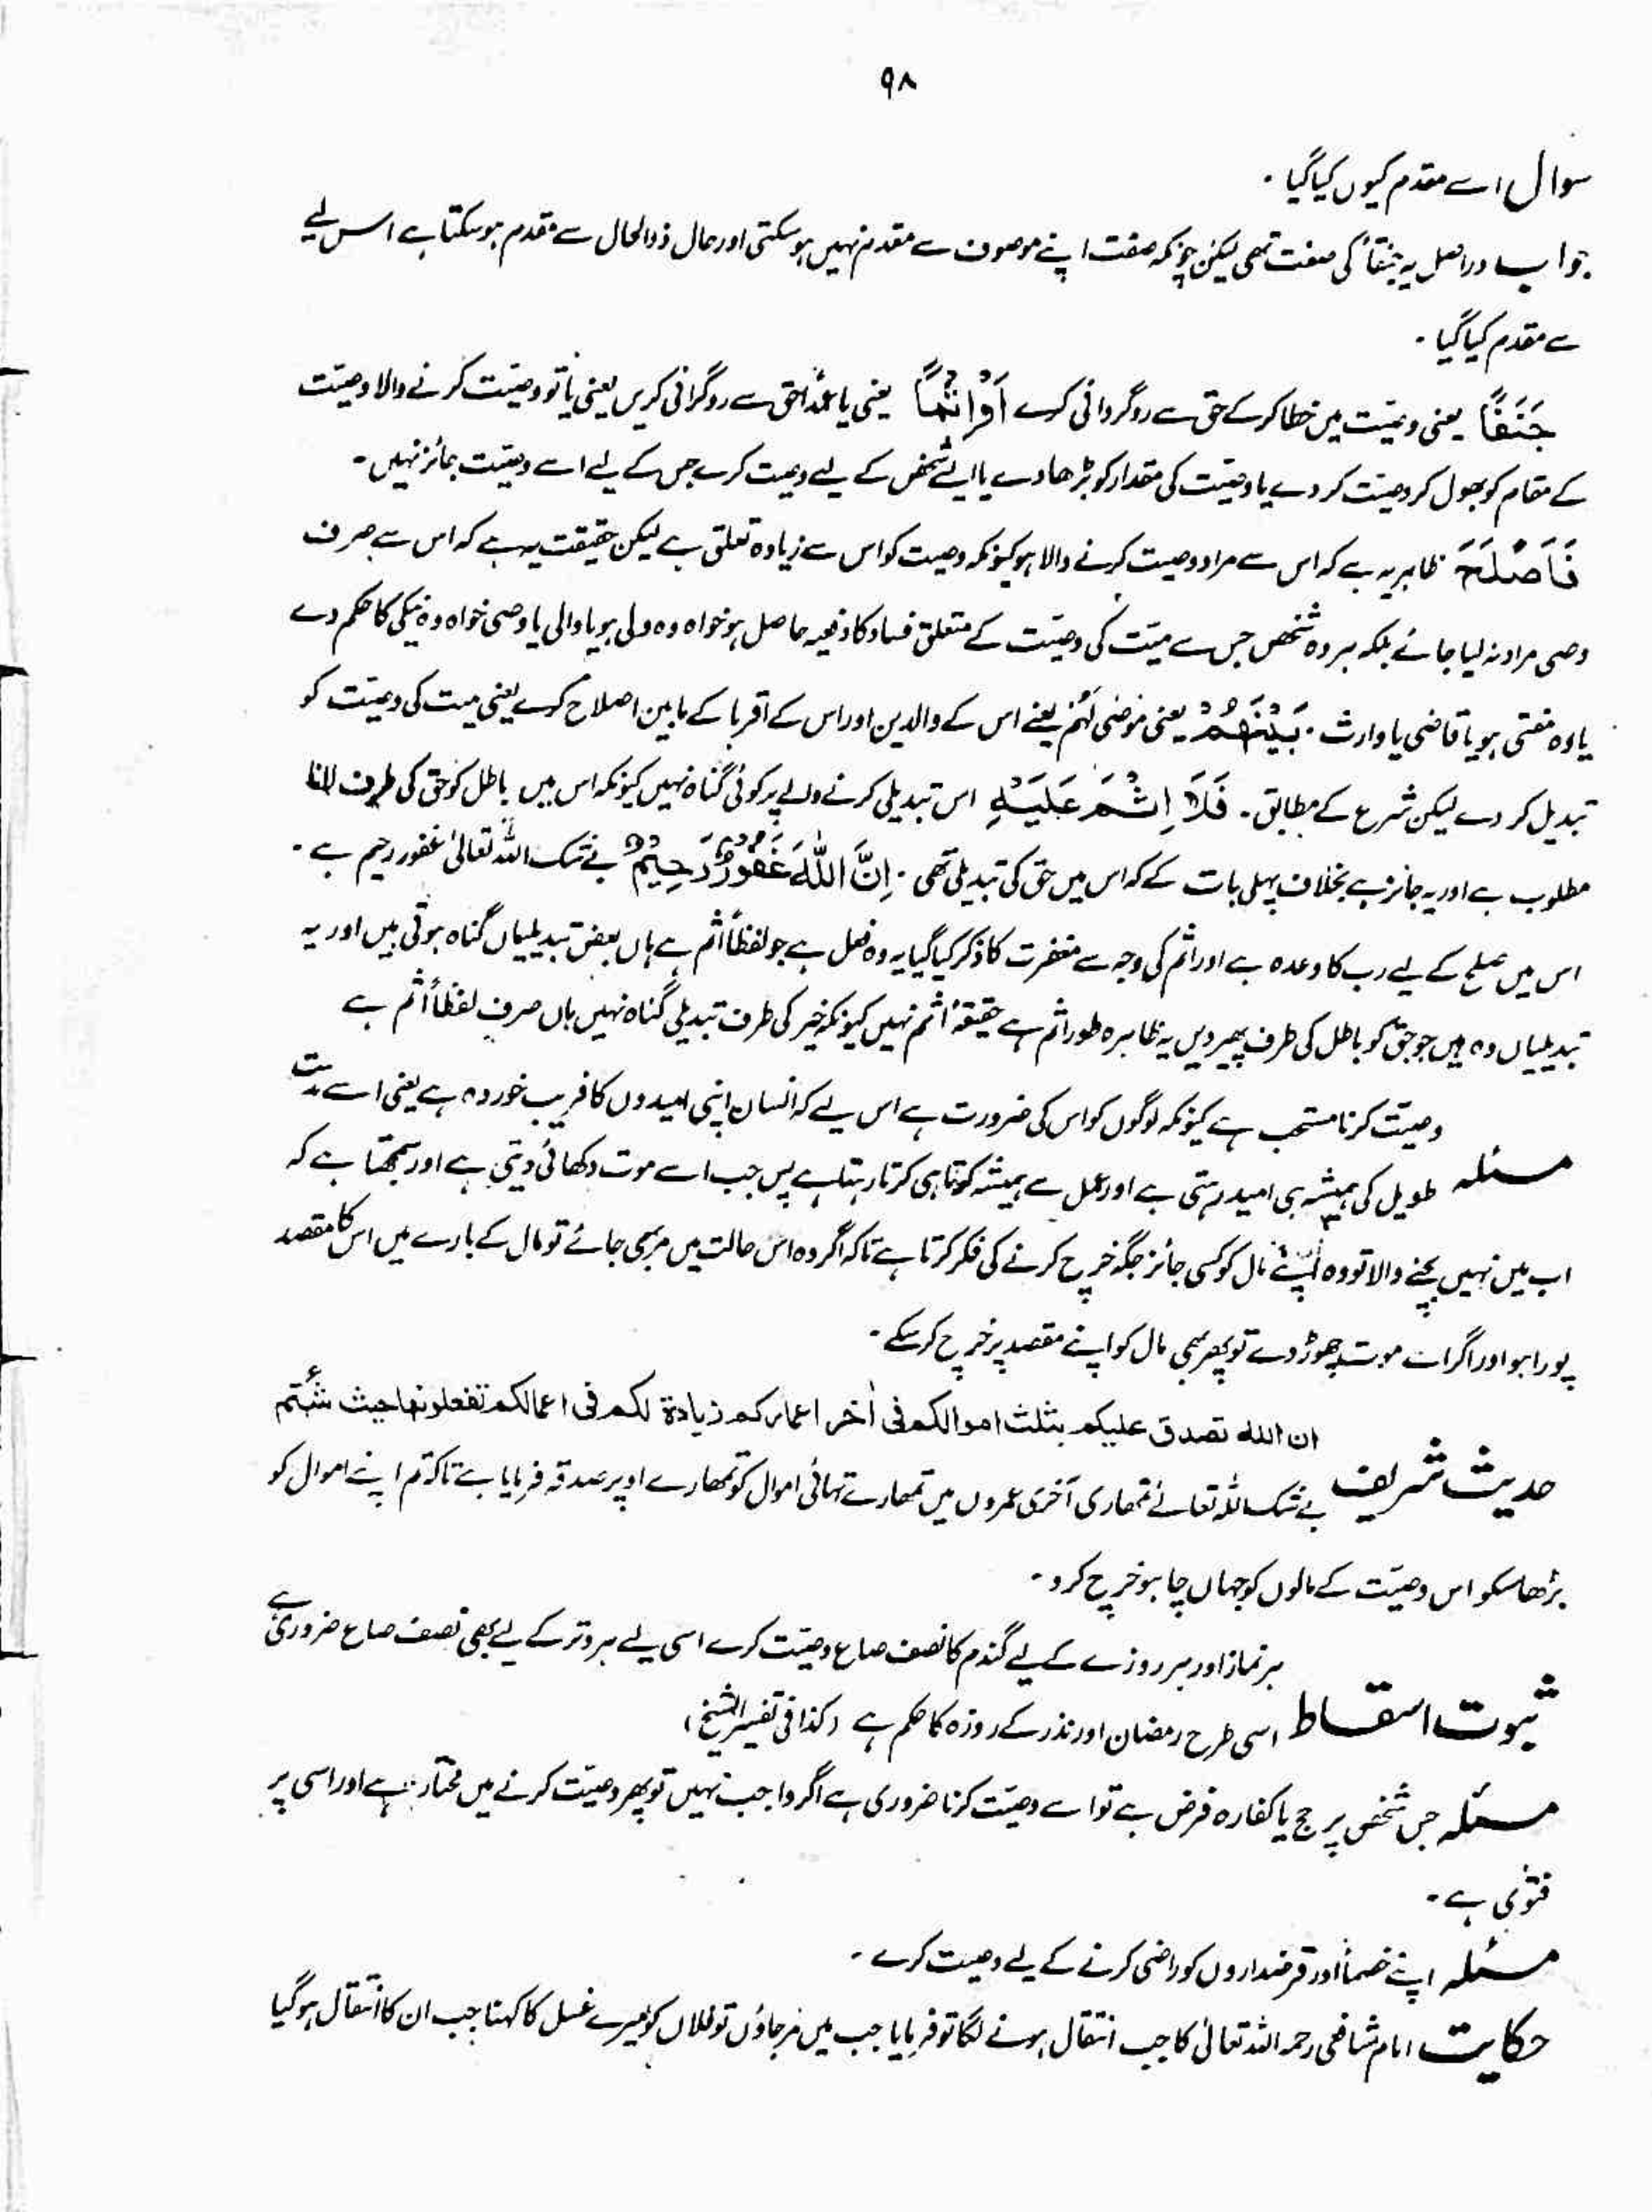 ۹۸
سوال اسے مقدم کیوں کیا گیا ۔
جواب دراصل یہ جنفاً کی صفت تھی لیکن چونکہ صفت اپنے موصوف سے مقدم نہیں ہو سکتی اور حال ذوالحال سے مقدم ہو سکتا ہے اس لیے
سے مقدم کیا گیا ۔
جَنَفًا یعنی وصیّت میں خطا کر کے حق سے روگردانی کرے اَوْ اِثْمًا یعنی یا عمداً حق سے روگرانی کریں یعنی یا تو وصیّت کرنے والا وصیّت
کے مقام کو بھول کر وصیّت کر دے یا وصیّت کی مقدار کو بڑھا دے یا ایسے شخص کے لیے وصیت کرے جس کے لیے اسے وصیّت جائز نہیں ۔
فَاَصْلَحَ ظاہر یہ ہے کہ اس سے مراد وصیت کرنے والا ہو کیونکہ وصیت کو اس سے زیادہ تعلق ہے لیکن حقیقت یہ ہے کہ اس سے صرف
وصی مراد نہ لیا جائے بلکہ ہر وہ شخص جس سے میّت کی وصیّت کے متعلق فساد کا دفعیہ حاصل ہو خواہ وہ ولی ہو یا والی یا وصی خواہ وہ نیکی کا حکم دے
یا وہ مفتی ہو یا قاضی یا وارث ۔ بَيْنَهُمْ یعنی موصٰی لَہُمْ یعنے اس کے والدین اور اس کے اقربا کے مابین اصلاح کرے یعنی میت کی وصیّت کو
تبدیل کر دے لیکن شرع کے مطابق ۔ فَلَا اِثْمَ عَلَيْهِ اس تبدیلی کرنے والے پر کوئی گناہ نہیں کیونکہ اس میں باطل کو حق کی طرف لانا
مطلوب ہے اور یہ جائز ہے بخلاف پہلی بات کے کہ اس میں حق کی تبدیلی تھی ۔ اِنَّ اللّٰهَ غَفُوْرٌ رَّحِيْمٌ بے شک اللہ تعالیٰ غفور رحیم ہے ۔
اس میں صلح کے لیے رب کا وعدہ ہے اور اثم کی وجہ سے مغفرت کا ذکر کیا گیا یہ وہ فعل ہے جو لفظاً اثم ہے ہاں بعض تبدیلیاں گناہ ہوتی ہیں اور یہ
تبدیلیاں وہ ہیں جو حق کو باطل کی طرف پھیر دیں یہ ظاہرہ طور اثم ہے حقیقۃً اثم نہیں کیونکہ خیر کی طرف تبدیلی گناہ نہیں ہاں صرف لفظاً اثم ہے
وصیّت کرنا مستحب ہے کیونکہ لوگوں کو اس کی ضرورت ہے اس لیے کہ انسان اپنی امیدوں کا فریب خوردہ ہے یعنی اسے مدت
مسئلہ طویل کی ہمیشہ ہی امید رہتی ہے اور عمل سے ہمیشہ کوتاہی کرتا رہتا ہے پس جب اسے موت دکھائی دیتی ہے اور سمجھتا ہے کہ
اب میں نہیں بچنے والا تو وہ اپنے مال کو کسی جائز جگہ خرچ کرنے کی فکر کرتا ہے تاکہ اگر وہ اس حالت میں مر بھی جائے تو مال کے بارے میں اس کا مقصد
پورا ہو اور اگر اسے موت چھوڑ دے تو پھر بھی مال کو اپنے مقصد پر خرچ کر سکے ۔
ان الله تصدق عليكم بثلث اموالكم فى أخر اعماركم زيادة لكم فى اعمالكم تفعلونها حيث شئتم
حدیث شریف بے شک اللہ تعالےٰ تمھاری آخری عمروں میں تمھارے تہائی اموال کو تمھارے اوپر صدقہ فرمایا ہے تاکہ تم اپنے اموال کو
بڑھا سکو اس وصیّت کے مالوں کو جہاں چاہو خرچ کرو ۔
ہر نماز اور ہر روزے کے لیے گندم کا نصف صاع وصیّت کرے اسی لیے ہر وتر کے لیے بھی نصف صاع ضروری ہے
ثبوت اسقاط اسی طرح رمضان اور نذر کے روزہ کا حکم ہے (کذا فی تفسیر الشیخ)
مسئلہ جس شخص پر حج یا کفارہ فرض ہے تو اسے وصیّت کرنا ضروری ہے اگر واجب نہیں تو پھر وصیّت کرنے میں مختار ہے اور اسی پر
فتوٰی ہے ۔
مسئلہ اپنے خصماً اور قرضداروں کو راضی کرنے کے لیے وصیت کرے ۔
حکایت امام شافعی رحمہ اللہ تعالیٰ کا جب انتقال ہونے لگا تو فرمایا جب میں مر جاؤں تو فلاں کو میرے غسل کا کہنا جب ان کا انتقال ہو گیا